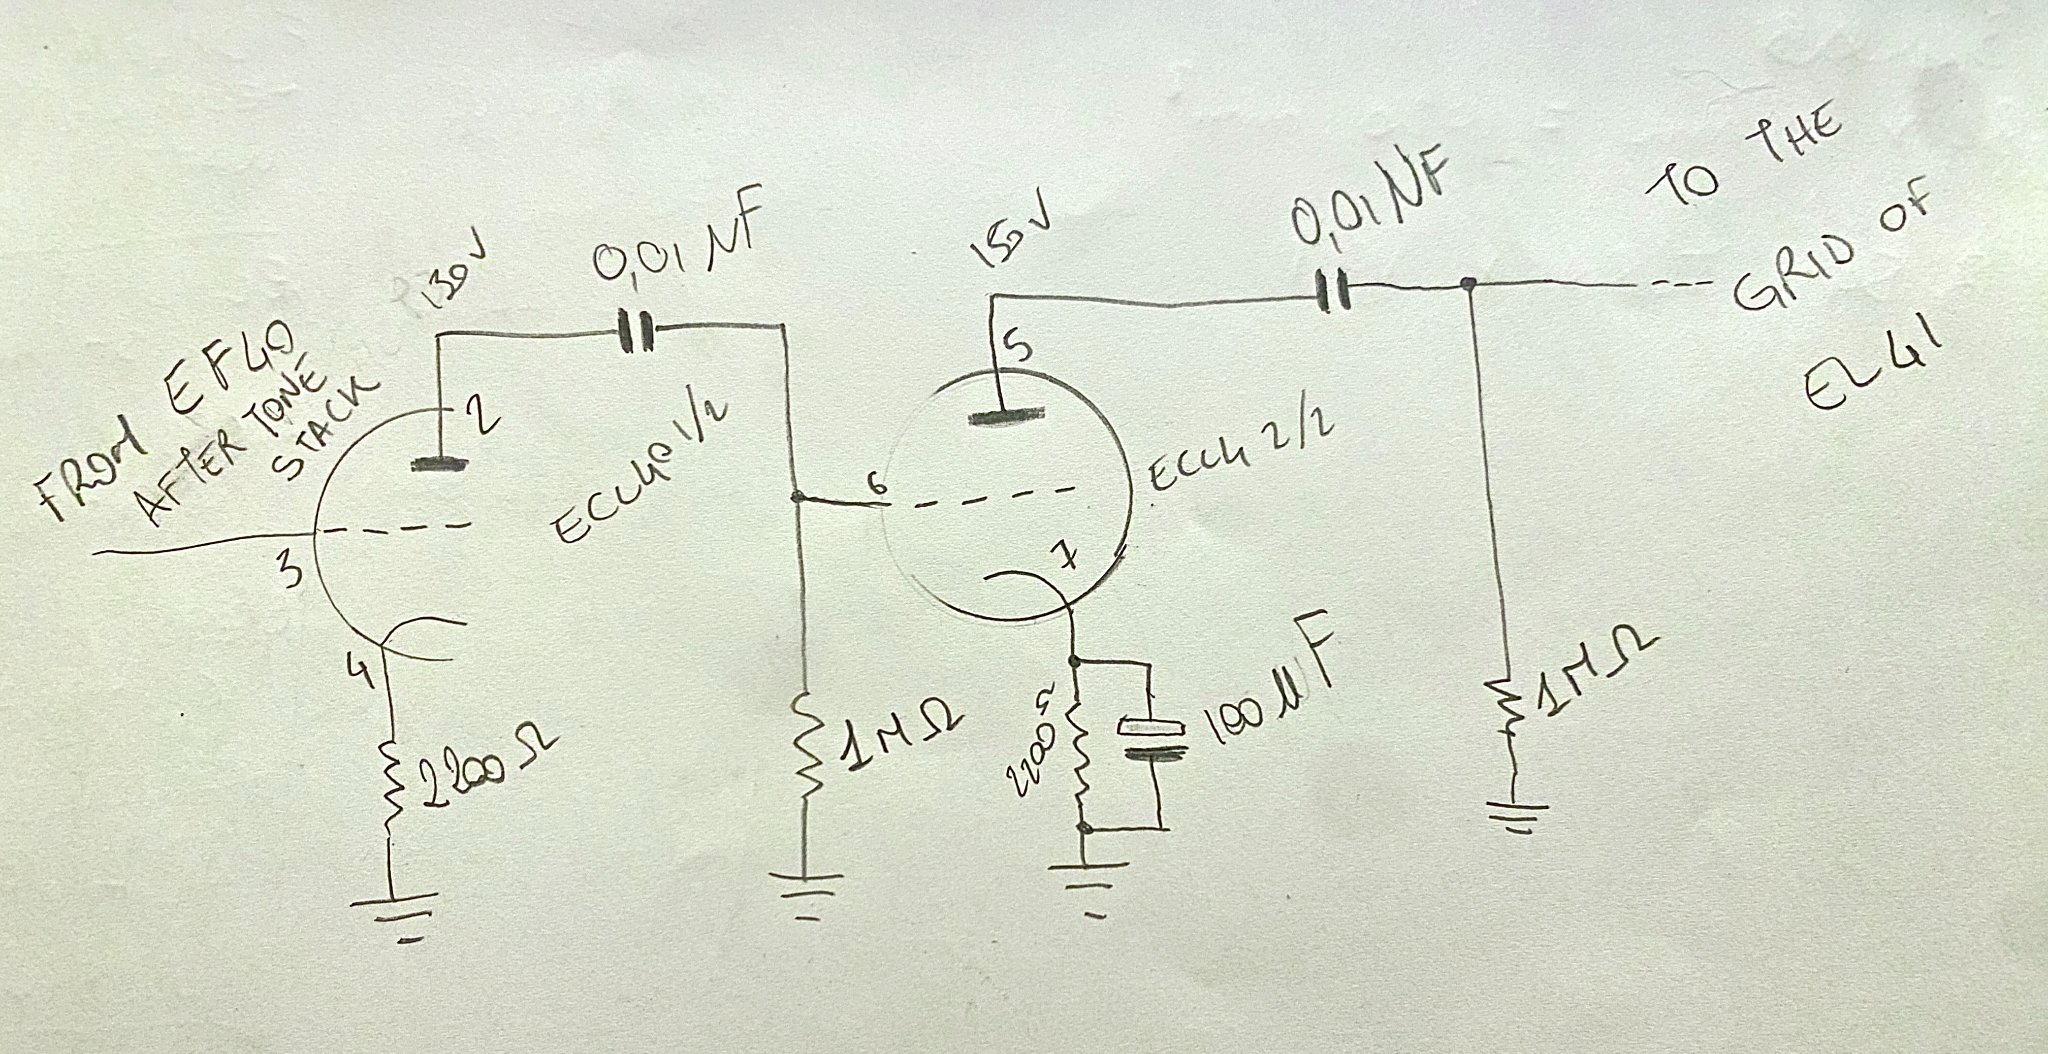 FROM EF40
AFTER TONE
STACK
130V
0,01 µF
2
3
4
ECC40 1/2
2200 Ω
1MΩ
150V
5
6
7
ECC4 2/2
2200 Ω
100 µF
0,01 µF
1MΩ
TO THE
GRID OF
EL41